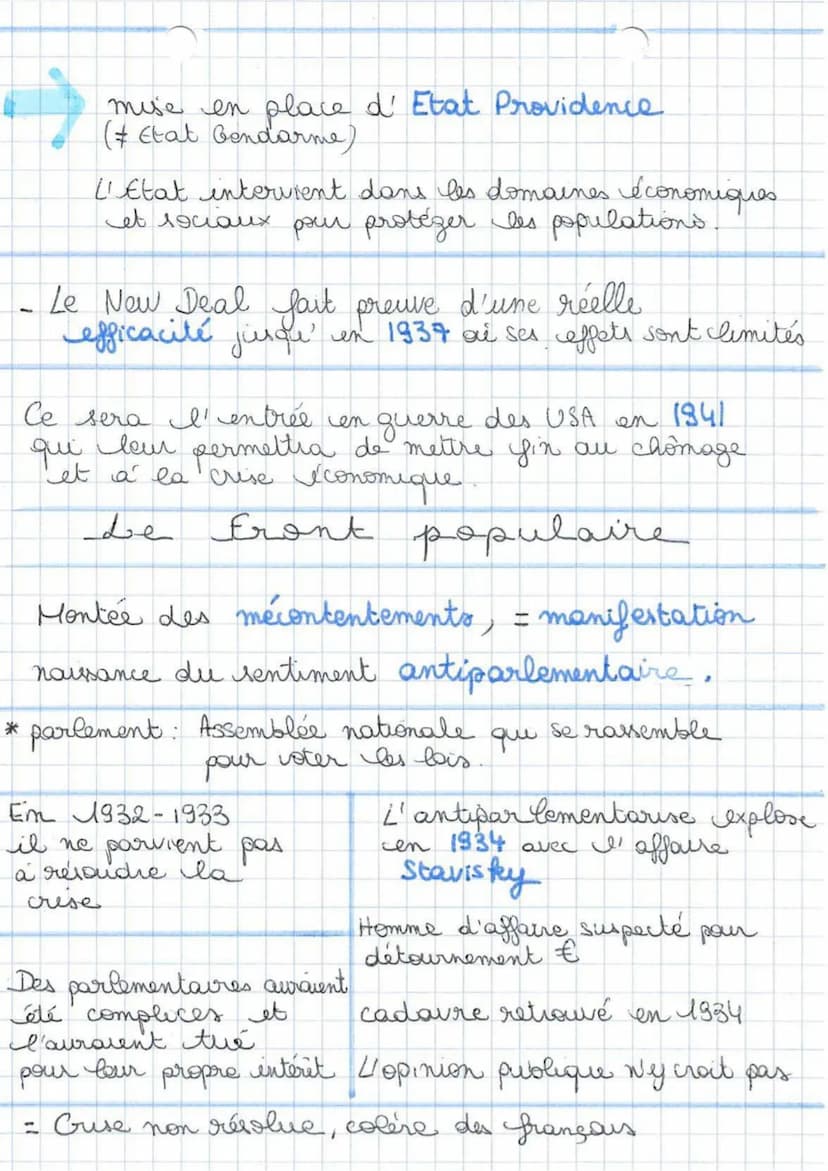 mise en place d' Etat Providence
(≠ Etat Gendarme)
L'Etat intervient dans les domaines économiques
et sociaux pour protéger les populations.
- Le New Deal fait preuve d'une réelle
efficacité jusqu' en 1937 où ses effets sont limités
Ce sera l'entrée en guerre des USA en 1941
qui leur permettra de mettre fin au chômage
et à la crise économique.
Le Front populaire
Montée des mécontentements, = manifestation
naissance du sentiment antiparlementaire.
* parlement : Assemblée nationale qui se rassemble
pour voter les lois.
En 1932-1933
il ne parvient pas
à résoudre la
crise
Des parlementaires auraient
été complices et
l'auraient tué
pour leur propre intérêt
L'antiparlementarise explose
en 1934 avec l'affaire
Stavisky
Homme d'affaire suspecté pour
détournement €
cadavre retrouvé en 1934
L'opinion publique n'y croit pas
= Crise non résolue, colère des français